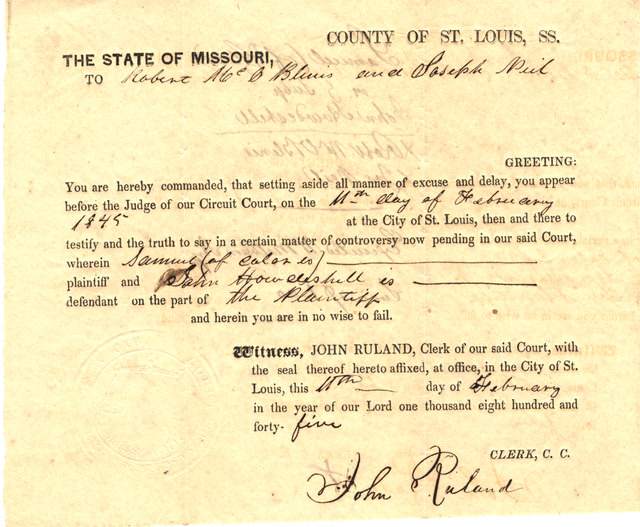 COUNTY OF ST. LOUIS, SS.
THE STATE OF MISSOURI,
TO Robert Mc O Blenis and Joseph Neil
GREETING:
You are hereby commanded, that setting aside all manner of excuse and delay, you appear
before the Judge of our Circuit Court, on the 11th day of February
1845 at the City of St. Louis, then and there to
testify and the truth to say in a certain matter of controversy now pending in our said Court,
wherein Samuel (of color is)
plaintiff and John Howdeshell is
defendant on the part of the Plaintiff
and herein you are in no wise to fail.
Witness, JOHN RULAND, Clerk of our said Court, with
the seal thereof hereto affixed, at office, in the City of St.
Louis, this 11th day of February
in the year of our Lord one thousand eight hundred and
forty-five
CLERK, C. C.
John Ruland